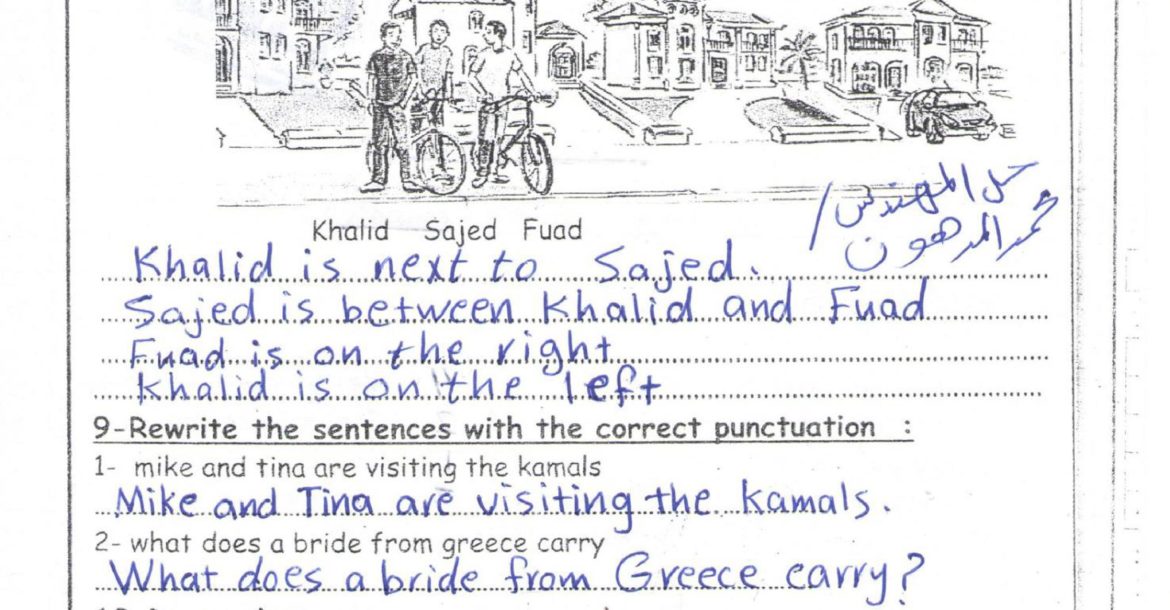 Khalid Sajed Fuad
حل المهندس/
محمد المدهون
Khalid is next to Sajed.
Sajed is between Khalid and Fuad
Fuad is on the right
Khalid is on the left
9-Rewrite the sentences with the correct punctuation :
1- mike and tina are visiting the kamals
Mike and Tina are visiting the Kamals.
2- what does a bride from greece carry
What does a bride from Greece carry?